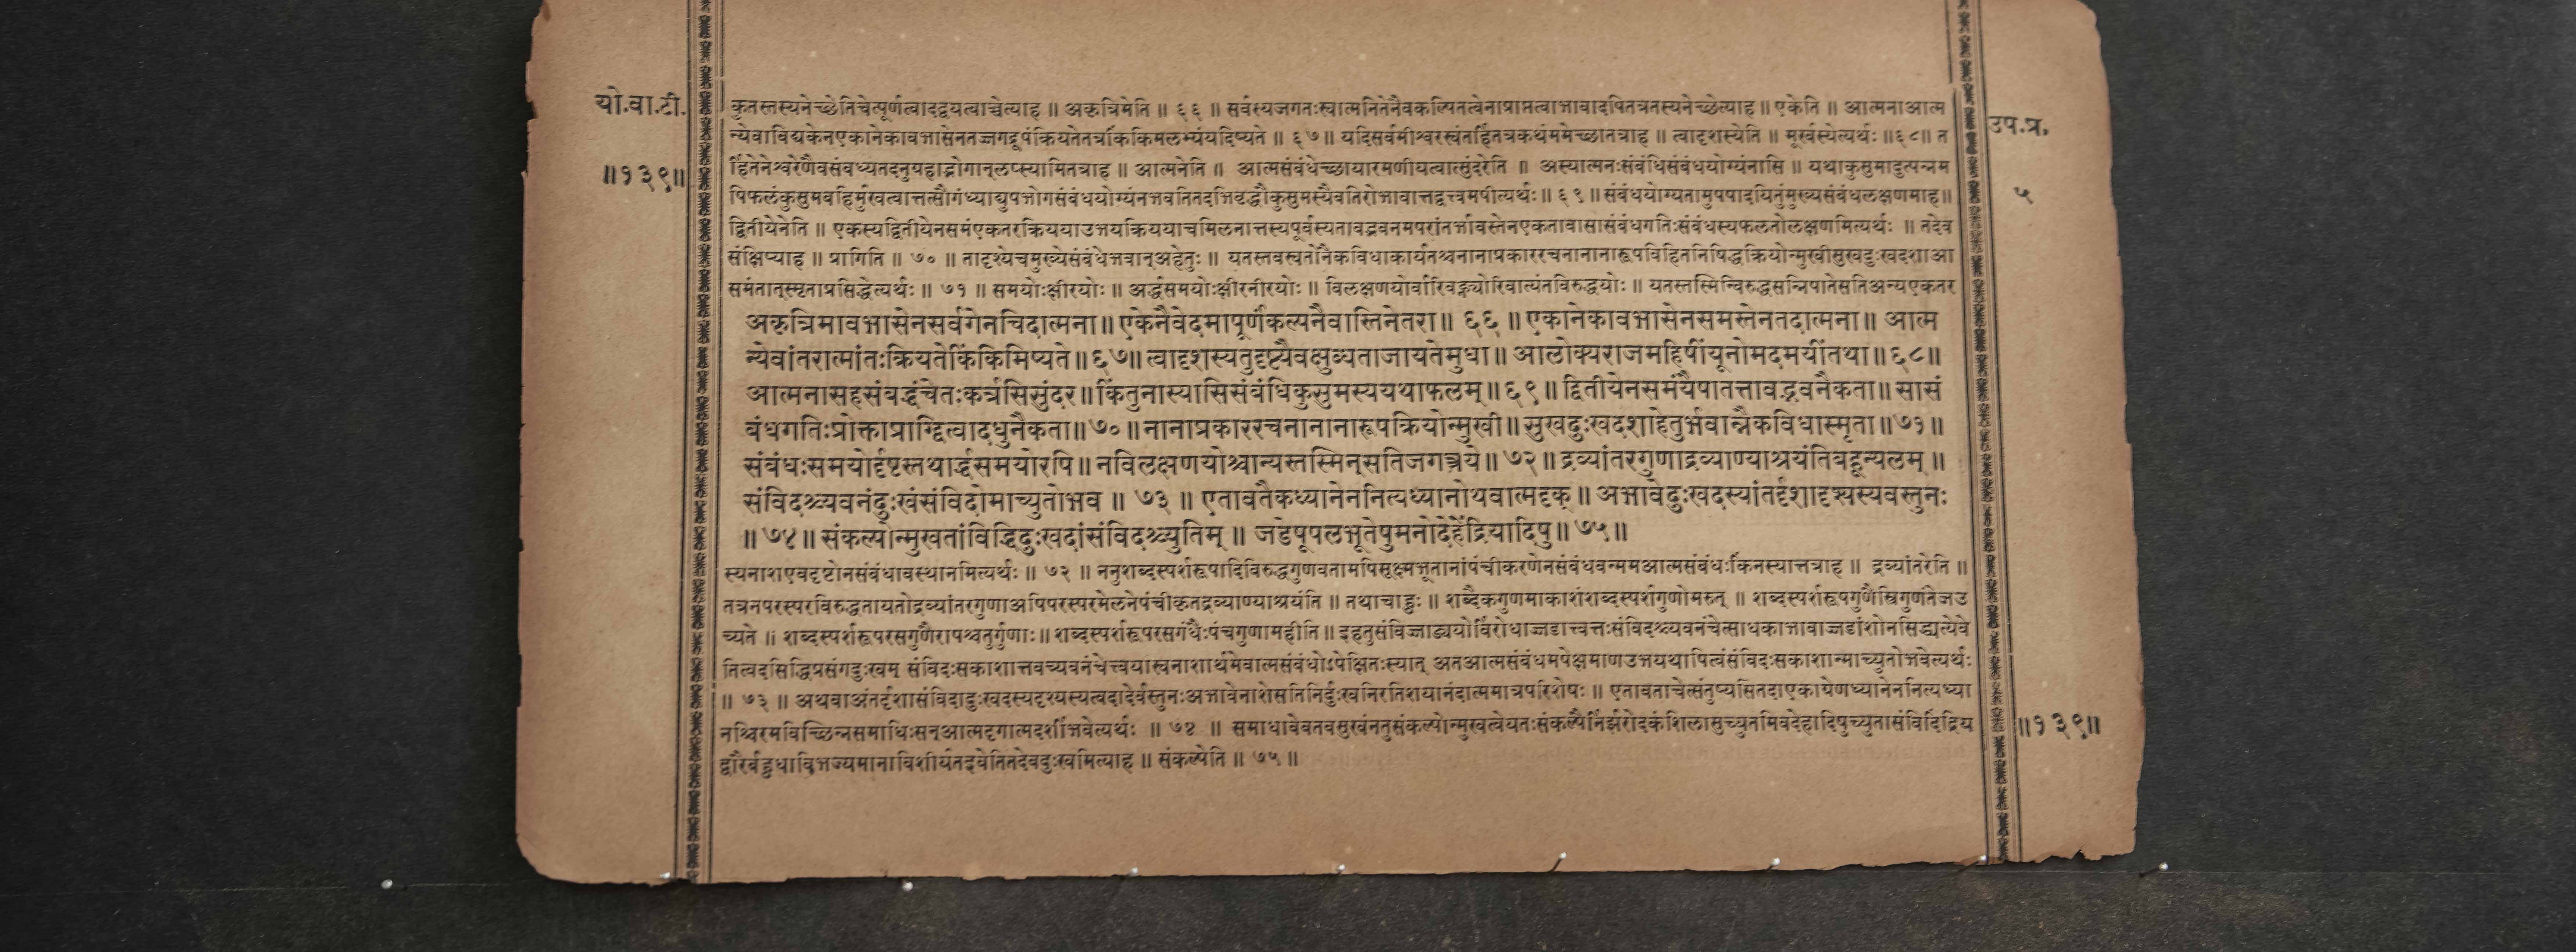 यो.वा.टी.
॥१३९॥
उप.प्र.
५
कुतस्तस्यनेच्छेतिचेत्पूर्णत्वादद्वयत्वाच्चेत्याह ॥ अकृत्रिमेति ॥ ६६ ॥ सर्वस्यजगतःस्वात्मनितेनैवकल्पितत्वेनाप्राप्तत्वाभावादपितत्रतस्यनेच्छेत्याह ॥ एकेति ॥ आत्मनाआत्म
न्येवाविद्यकेनएकानेकावभासेनतज्जगद्रूपंक्रियतेतर्त्राकिंकिमलभ्यंयदिष्यते ॥ ६७ ॥ यदिसर्वमीश्वरस्यंतर्हितत्रकथंममेच्छातत्राह ॥ त्वादृशस्येति ॥ मूर्खस्येत्यर्थः ॥ ६८ ॥ त
र्हितेनेश्वरेणैवसंबध्यतदनुग्रहाद्भोगान्लप्स्यामितत्राह ॥ आत्मनेति ॥ आत्मसंबंधेच्छायारमणीयत्वात्सुंदरेति ॥ अस्यात्मनःसंबंधिसंबंधयोग्यंनासि ॥ यथाकुसुमादुत्पन्नम
पिफलंकुसुमवहिर्मुखत्वात्तत्सौगंध्याद्युपभोगसंबंधयोग्यंनभवतितदभिवृद्धौकुसुमस्यैवतिरोभावात्तद्वत्त्वमपीत्यर्थः ॥ ६९ ॥ संबंधयोग्यतामुपपादयितुंमुख्यसंबंधलक्षणमाह॥
द्वितीयेनेति ॥ एकस्यद्वितीयेनसमंएकतरक्रिययाउभयक्रिययाचमिलनात्तस्यपूर्वस्यतावद्भवनमपरांतर्भावस्तेनएकतावासासंबंधगतिःसंबंधस्यफलतोलक्षणमित्यर्थः ॥ तदेव
संक्षिप्याह ॥ प्रागिति ॥ ७० ॥ तादृश्येचमुख्येसंबंधेभवान्अहेतुः ॥ यतस्तवस्वतोनैकविधाकार्यतश्चनानाप्रकाररचनानानारूपविहितनिषिद्धक्रियोन्मुखीसुखदुःखदशाआ
समंतात्स्मृताप्रसिद्धेत्यर्थः ॥ ७१ ॥ समयोःक्षीरयोः ॥ अर्द्धसमयोःक्षीरनीरयोः ॥ विलक्षणयोर्वारिवह्न्योरिवात्यंतविरुद्धयोः ॥ यतस्तस्मिन्विरुद्धसन्निपातेसतिअन्यएकतर
अकृत्रिमावभासेनसर्वगेनचिदात्मना॥ एकेनैवेदमापूर्णंकल्पनैवास्तिनेतरा॥ ६६ ॥ एकानेकावभासेनसमस्तेनतदात्मना॥ आत्म
न्येवांतरात्मांतःक्रियतेकिंकिमिष्यते॥ ६७॥ त्वादृशस्यतुदृष्ट्यैवक्षुब्धताजायतेमुधा॥ आलोक्यराजमहिषींयूनोमदमयींतथा॥ ६८॥
आत्मनासहसंबद्धंचेतःकर्त्रसिसुंदर॥ किंतुनास्यासिसंबंधिकुसुमस्ययथाफलम्॥ ६९॥ द्वितीयेनसमंयैषातत्तावद्भवनैकता॥ सासं
बंधगतिःप्रोक्ताप्राग्द्वित्वादधुनैकता॥ ७०॥ नानाप्रकाररचनानानारूपक्रियोन्मुखी॥ सुखदुःखदशाहेतुर्भवान्नैकविधास्मृता॥ ७१॥
संबंधःसमयोर्दृष्टस्तथार्द्धसमयोरपि॥ नविलक्षणयोश्चान्यस्तस्मिन्सतिजगत्त्रये॥ ७२॥ द्रव्यांतरगुणाद्रव्याण्याश्रयंतिबहून्यलम्॥
संविदश्च्यवनंदुःखंसंविदोमाच्युतोभव॥ ७३ ॥ एतावतैकध्यानेननित्यध्यानोथवात्मदृक्॥ अभावेदुःखदस्यांतर्दृशादृश्यस्यवस्तुनः
॥ ७४॥ संकल्पोन्मुखतांविद्धिदुःखदांसंविदश्च्युतिम्॥ जडेषूपलभूतेषुमनोदेहेंद्रियादिषु॥ ७५॥
स्यनाशएवदृष्टोनसंबंधावस्थानमित्यर्थः ॥ ७२ ॥ ननुशब्दस्पर्शरूपादिविरुद्धगुणवतामपिसूक्ष्मभूतानांपंचीकरणेनसंबंधवन्ममआत्मसंबंधःकिंनस्यात्तत्राह ॥ द्रव्यांतरेति ॥
तत्रनपरस्परविरुद्धतायतोद्रव्यांतरगुणाअपिपरस्परमेलनेपंचीकृतद्रव्याण्याश्रयंति ॥ तथाचाहुः ॥ शब्दैकगुणमाकाशंशब्दस्पर्शगुणोमरुत् ॥ शब्दस्पर्शरूपगुणैस्त्रिगुणंतेजउ
च्यते ॥ शब्दस्पर्शरूपरसगुणैरापश्चतुर्गुणाः॥ शब्दस्पर्शरूपरसगंधैःपंचगुणामहीति॥ इहतुसंविज्जाड्ययोर्विरोधाज्जडात्त्वत्तःसंविदश्च्यवनंचेत्साधकाभावाज्जडांशोनसिद्ध्यत्येवे
तित्वदसिद्धिप्रसंगदुःखम् संविदःसकाशात्तवच्यवनंचेत्त्वयास्वनाशार्थमेवात्मसंबंधोऽपेक्षितःस्यात् अतआत्मसंबंधमपेक्षमाणउभयथापित्वंसंविदःसकाशान्माच्युतोभवेत्यर्थः
॥ ७३ ॥ अथवाअंतर्दृशासंविदादुःखदस्यदृश्यस्यत्वदादेर्वस्तुनःअभावेनाशेसतिनिर्दुःखनिरतिशयानंदात्ममात्रपरिशेषः ॥ एतावताचेत्संतुष्यसितदाएकाग्रेणध्यानेननित्यध्या
नश्चिरमविच्छिन्नसमाधिःसन्आत्मदृगात्मदर्शीभवेत्यर्थः ॥ ७४ ॥ समाधावेवतवसुखंनतुसंकल्पोन्मुखत्वेयतःसंकल्पैर्निर्झरोदकंशिलासुच्युतमिवदेहादिषुच्युतासंविदिंद्रिय
द्वारैर्बहुधाविभज्यमानाविशीर्यतइवेतितदेवदुःखमित्याह ॥ संकल्पेति ॥ ७५ ॥
॥१३९॥